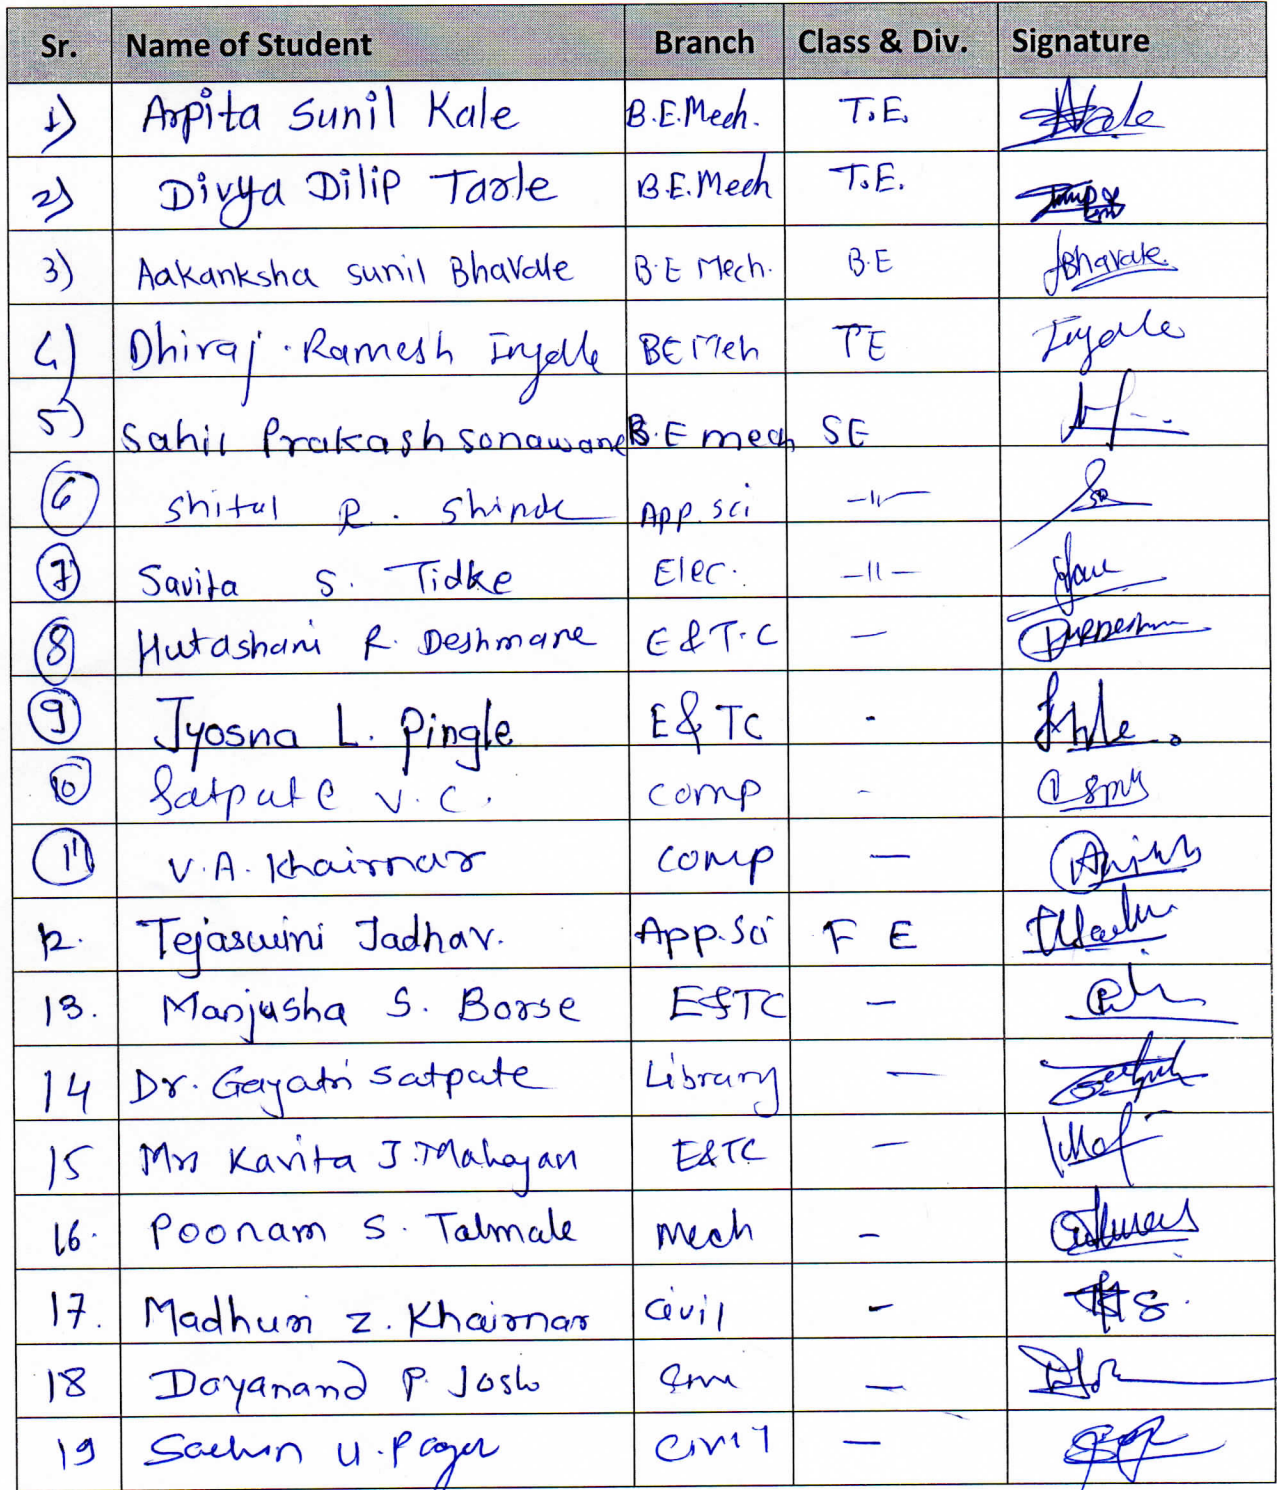 Sr. Name of Student Branch Class & Div. Signature
1) Arpita Sunil Kale B.E.Mech. T.E.
2) Divya Dilip Tarle B.E.Mech T.E.
3) Aakanksha sunil Bhavale B.E Mech. B.E Bhavale
4) Dhiraj Ramesh Ingale BE Meh TE Ingale
5) Sahil Prakash sonawane B.E mech SE
6 Shital R. Shinde App.sci -11-
7 Savita S. Tidke Elec. -11-
8 Hutashani R. Deshmane E & T.C -
9 Jyosna L. Pingle E& TC -
10 Satpute V.C. comp -
11 V.A. Khairnar comp -
12. Tejaswini Jadhav. App.Sci F E
13. Manjusha S. Borse E&TC -
14 Dr. Gayatri Satpute Library -
15 Mrs Kavita J. Mahajan E&TC -
16. Poonam S. Talmale Mech -
17. Madhuri Z. Khairnar Civil -
18 Dayanand P. Joshi -
19 Sachin U. Pagar Civil -